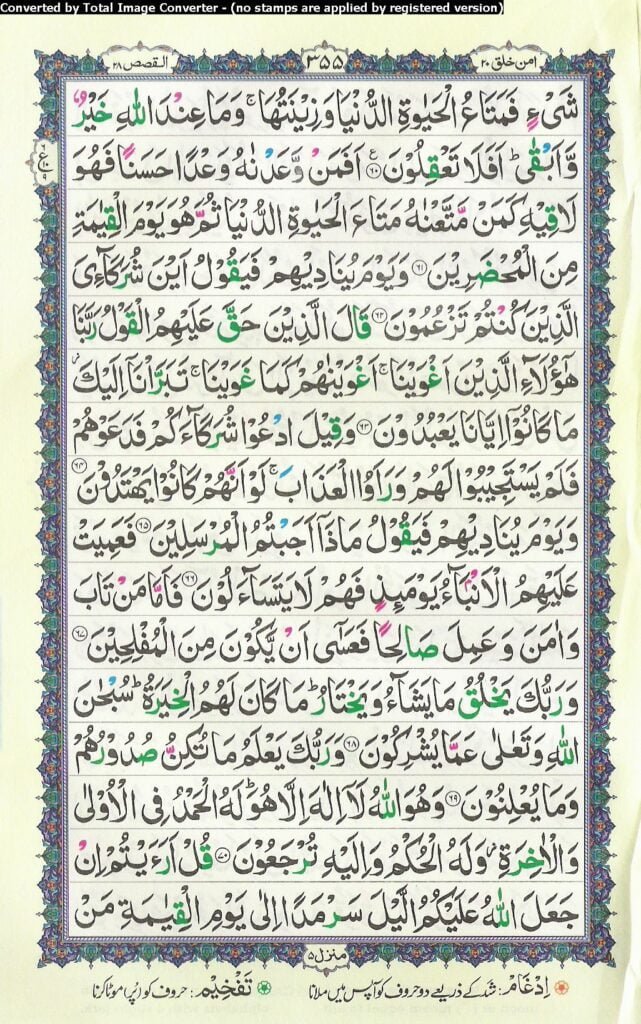 Converted by Total Image Converter - (no stamps are applied by registered version)
امن خلق ٢٠ ٣٥٥ القصص ٢٨
شَیْءٍ فَمَتَاعُ الْحَیٰوةِ الدُّنْیَا وَ زِیْنَتُهَا ۚ وَ مَا عِنْدَ اللّٰهِ خَیْرٌ
وَّ اَبْقٰی ؕ اَفَلَا تَعْقِلُوْنَ ﴿٦٠﴾ اَفَمَنْ وَّعَدْنٰهُ وَعْدًا حَسَنًا فَهُوَ
لَاقِیْهِ كَمَنْ مَّتَّعْنٰهُ مَتَاعَ الْحَیٰوةِ الدُّنْیَا ثُمَّ هُوَ یَوْمَ الْقِیٰمَةِ
مِنَ الْمُحْضَرِیْنَ ﴿٦١﴾ وَ یَوْمَ یُنَادِیْهِمْ فَیَقُوْلُ اَیْنَ شُرَكَآءِیَ
الَّذِیْنَ كُنْتُمْ تَزْعُمُوْنَ ﴿٦٢﴾ قَالَ الَّذِیْنَ حَقَّ عَلَیْهِمُ الْقَوْلُ رَبَّنَا
هٰۤؤُلَآءِ الَّذِیْنَ اَغْوَیْنَا ۚ اَغْوَیْنٰهُمْ كَمَا غَوَیْنَا ۚ تَبَرَّاْنَاۤ اِلَیْكَ ؗ
مَا كَانُوْۤا اِیَّانَا یَعْبُدُوْنَ ﴿٦٣﴾ وَ قِیْلَ ادْعُوْا شُرَكَآءَكُمْ فَدَعَوْهُمْ
فَلَمْ یَسْتَجِیْبُوْا لَهُمْ وَ رَاَوُا الْعَذَابَ ۚ لَوْ اَنَّهُمْ كَانُوْا یَهْتَدُوْنَ ﴿٦٤﴾
وَ یَوْمَ یُنَادِیْهِمْ فَیَقُوْلُ مَاذَاۤ اَجَبْتُمُ الْمُرْسَلِیْنَ ﴿٦٥﴾ فَعَمِیَتْ
عَلَیْهِمُ الْاَنْۢبَآءُ یَوْمَىِٕذٍ فَهُمْ لَا یَتَسَآءَلُوْنَ ﴿٦٦﴾ فَاَمَّا مَنْ تَابَ
وَ اٰمَنَ وَ عَمِلَ صَالِحًا فَعَسٰۤی اَنْ یَّكُوْنَ مِنَ الْمُفْلِحِیْنَ ﴿٦٧﴾
وَ رَبُّكَ یَخْلُقُ مَا یَشَآءُ وَ یَخْتَارُ ؕ مَا كَانَ لَهُمُ الْخِیَرَةُ ؕ سُبْحٰنَ
اللّٰهِ وَ تَعٰلٰی عَمَّا یُشْرِكُوْنَ ﴿٦٨﴾ وَ رَبُّكَ یَعْلَمُ مَا تُكِنُّ صُدُوْرُهُمْ
وَ مَا یُعْلِنُوْنَ ﴿٦٩﴾ وَ هُوَ اللّٰهُ لَاۤ اِلٰهَ اِلَّا هُوَ ؕ لَهُ الْحَمْدُ فِی الْاُوْلٰی
وَ الْاٰخِرَةِ ؗ وَ لَهُ الْحُكْمُ وَ اِلَیْهِ تُرْجَعُوْنَ ﴿٧٠﴾ قُلْ اَرَءَیْتُمْ اِنْ
جَعَلَ اللّٰهُ عَلَیْكُمُ الَّیْلَ سَرْمَدًا اِلٰی یَوْمِ الْقِیٰمَةِ مَنْ
منزل ٥
اِدْغَام: شد کے ذریعے دو حروف کو آپس میں ملانا تَفْخِیْم: حروف کو پُر / موٹا کرنا